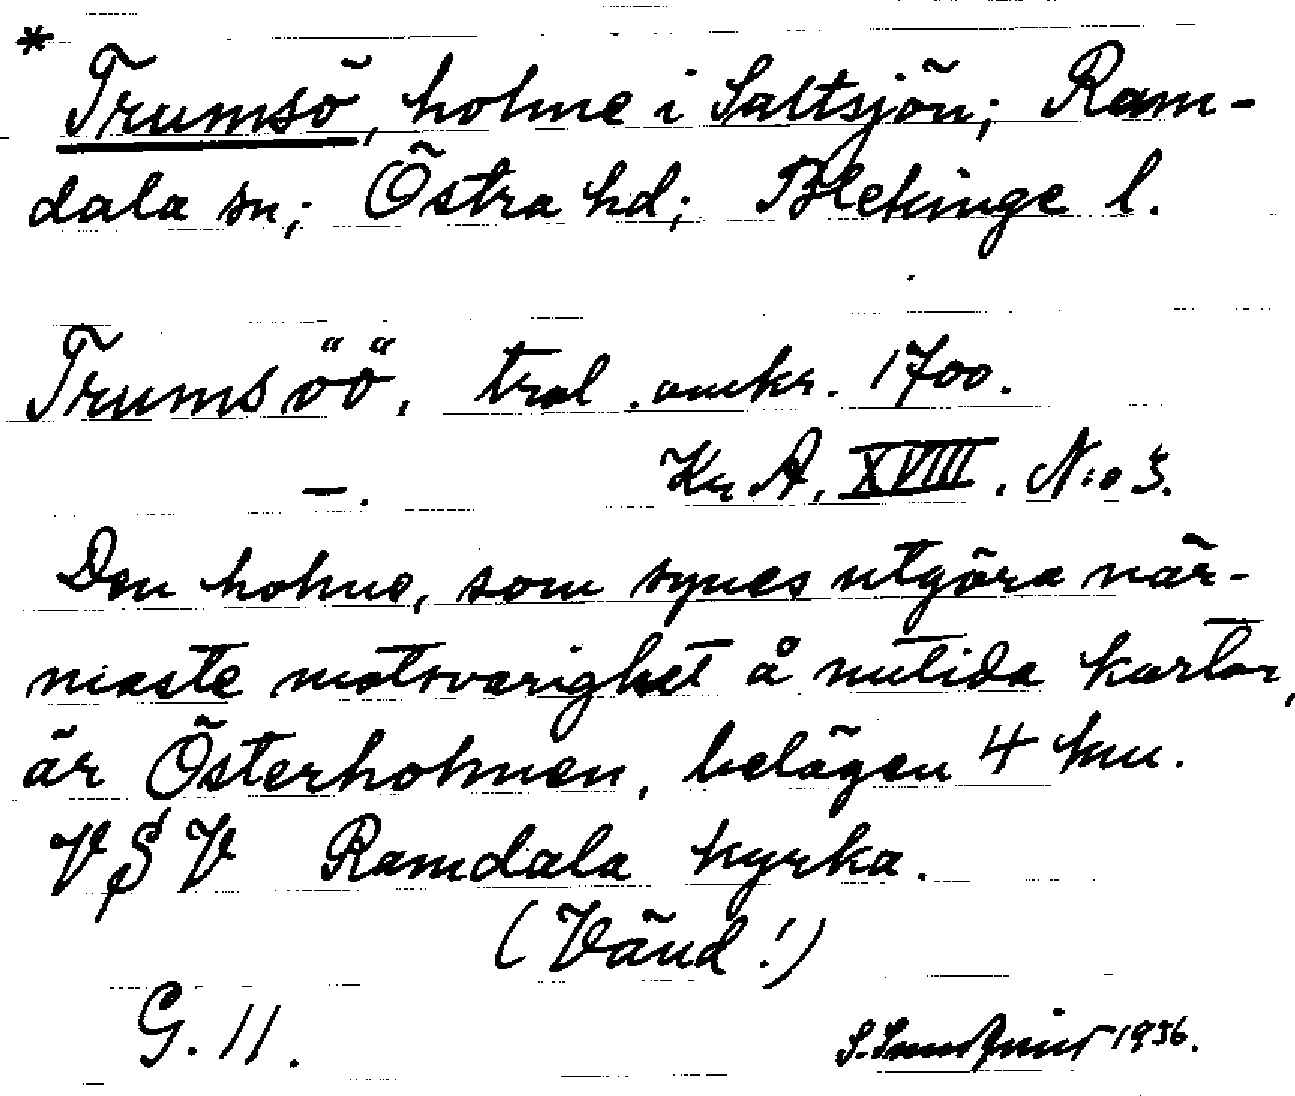 * Trumsö, holme i Saltsjön; Ram-
dala sn; Östra hd; Blekinge l.
Trumsöö, trol. omkr. 1700.
—. Kr A, XVIII. N:o 3.
Den holme, som synes utgöra när-
maste motsvarighet å nutida kartor,
är Österholmen, belägen 4 km.
V§V Ramdala kyrka.
(Vänd!)
G. 11. S. 1936.